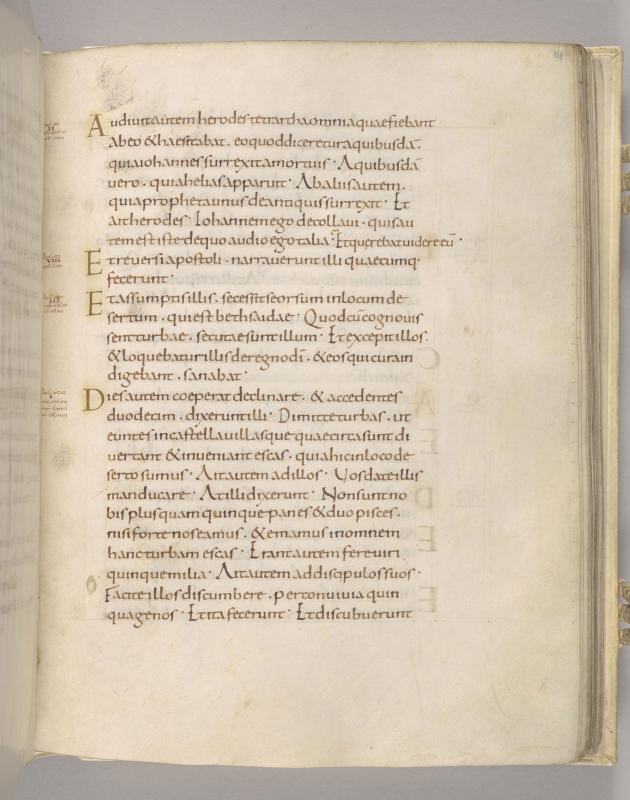 Audivit autem herodes tetrarcha omnia quae fiebant
ab eo & haesitabat . eo quod diceretur a quibusdā.
quia iohannes surrexit a mortuis · A quibusdā
vero . quia helias apparuit · Ab aliis autem .
quia propheta unus de antiquis surrexit · Et
ait herodes · Iohannem ego decollavi . quis au
tem est iste de quo audio ego talia · Et querebat videre eū ·
Et reversi apostoli . narraverunt illi quaecumq·
fecerunt ·
Et assumptis illis . secessit seorsum in locum de
sertum . qui est bethsaidae · Quod cū cognovis
sent turbae . secutae sunt illum · Et excepit illos .
& loquebatur illis de regno dī . & eos qui cura in
digebant . sanabat ·
Dies autem coeperat declinare . & accedentes
duodecim . dixerunt illi · Dimitte turbas . ut
euntes in castella villasque quae circa sunt di
vertant & inveniant escas . quia hic in loco de
serto sumus · Ait autem ad illos · Vos date illis
manducare · At illi dixerunt · Non sunt no
bis plus quam quinque panes & duo pisces .
nisi forte nos eamus . & emamus in omnem
hanc turbam escas · Erant autem fere viri
quinque milia · Ait autem ad discipulos suos ·
Facite illos discumbere . per convivia quin
quagenos · Et ita fecerunt · Et discubuerunt